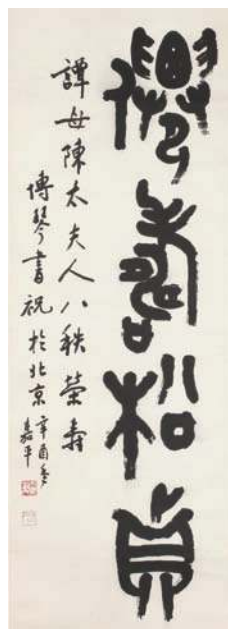 僊壽松貞
譚母陳太夫人八秩榮壽
博琴書祝於北京
辛酉冬
嘉平